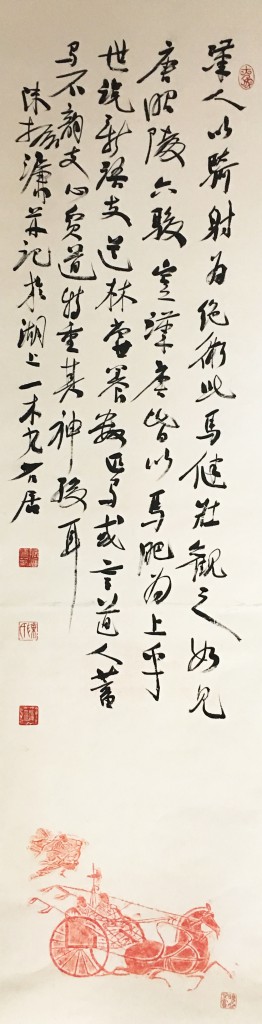 漢人以騎射為絕術此馬健壯觀之如見
唐昭陵六駿豈漢唐皆以馬肥為上乎
世說新語支道林嘗養數匹馬或言道人蓄
馬不韻支心貧道特重其神駿耳
陳振濂并記於湖上一木九等居